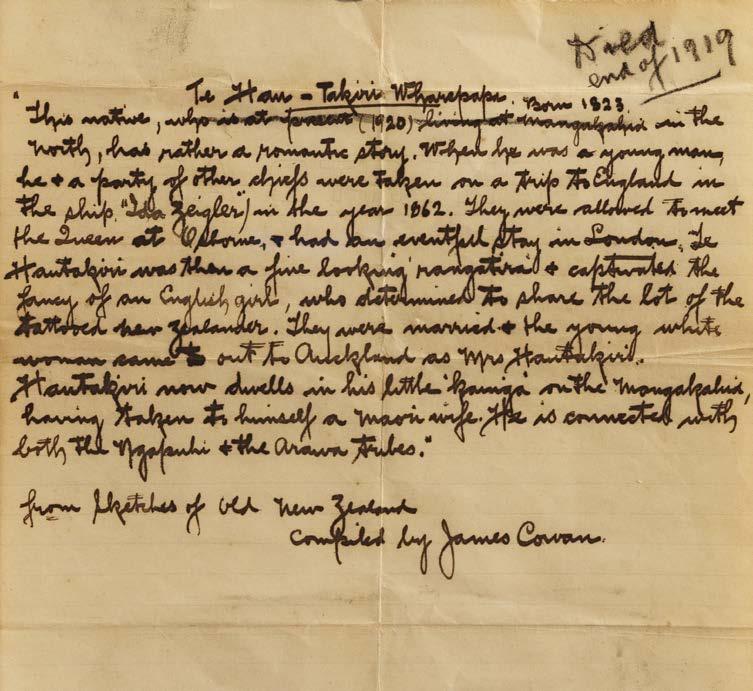 Died
end of 1919
Te Hau - Takiri Wharepapa. Born 1823.
"This native, who is at present (1920) living at Mangakahia in the
North, has rather a romantic story. When he was a young man,
he & a party of other chiefs were taken on a trip to England in
the ship "Ida Zeigler") in the year 1862. They were allowed to meet
the Queen at Osborne, & had an eventful stay in London. Te
Hautakiri was then a fine looking 'rangatira' & captivated the
fancy of an English girl, who determined to share the lot of the
tattooed New Zealander. They were married & the young white
woman came to out to Auckland as Mrs Hautakiri.
Hautakiri now dwells in his little 'kainga' on the Mangakahia,
having taken to himself a Maori wife. He is connected with
both the Ngapuhi & the Arawa tribes."
from Sketches of Old New Zealand
Compiled by James Cowan.